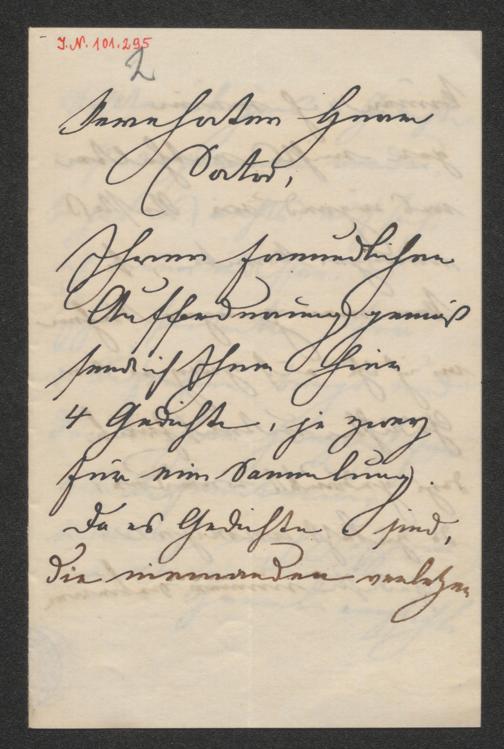 J.N. 101.295
2
Verehrter Herr
Doctor,
Ihrer freundlichen
Aufforderung gemäß
send ich Ihnen hier
4 Gedichte, je zwey
für eine Sammlung.
Da es Gedichte sind,
die niemanden verletzen